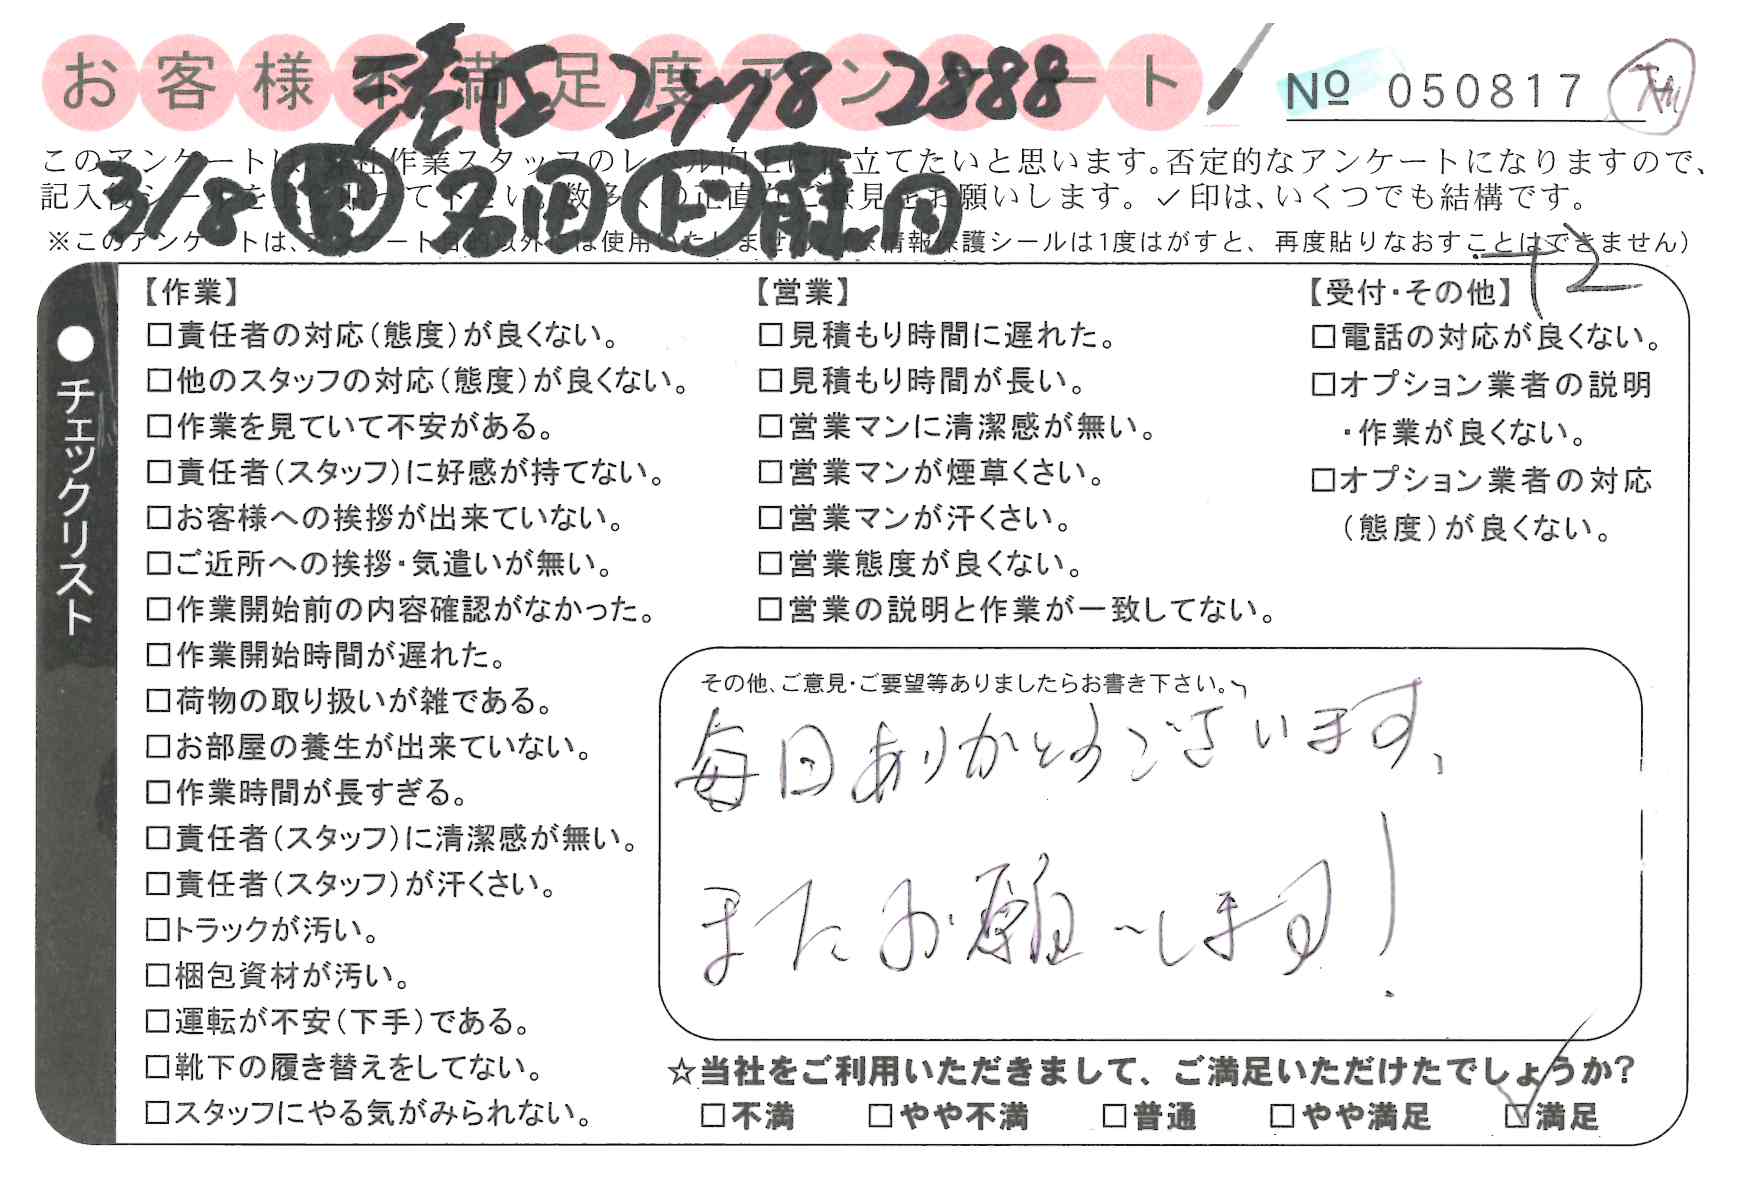 お客様不満足度アンケート
№ 050817
港区 2778 2888
このアンケートは、 社作業スタッフのレベル向上に役立てたいと思います。否定的なアンケートになりますので、
記入後シールを上に貼って下さい。数多くの正直なご意見をお願いします。✓印は、いくつでも結構です。
3/8
※このアンケートは、アンケート目的以外には使用いたしません。 情報保護シールは1度はがすと、再度貼りなおすことはできません)
+2
●チェックリスト
【作業】
□責任者の対応(態度)が良くない。
□他のスタッフの対応(態度)が良くない。
□作業を見ていて不安がある。
□責任者(スタッフ)に好感が持てない。
□お客様への挨拶が出来ていない。
□ご近所への挨拶・気遣いが無い。
□作業開始前の内容確認がなかった。
□作業開始時間が遅れた。
□荷物の取り扱いが雑である。
□お部屋の養生が出来ていない。
□作業時間が長すぎる。
□責任者(スタッフ)に清潔感が無い。
□責任者(スタッフ)が汗くさい。
□トラックが汚い。
□梱包資材が汚い。
□運転が不安(下手)である。
□靴下の履き替えをしてない。
□スタッフにやる気がみられない。
【営業】
□見積もり時間に遅れた。
□見積もり時間が長い。
□営業マンに清潔感が無い。
□営業マンが煙草くさい。
□営業マンが汗くさい。
□営業態度が良くない。
□営業の説明と作業が一致してない。
【受付・その他】
□電話の対応が良くない。
□オプション業者の説明
・作業が良くない。
□オプション業者の対応
(態度)が良くない。
その他、ご意見・ご要望等ありましたらお書き下さい。
毎回ありがとうございます、
またお願いします!
☆当社をご利用いただきまして、ご満足いただけたでしょうか?
□不満 □やや不満 □普通 □やや満足 ☑満足